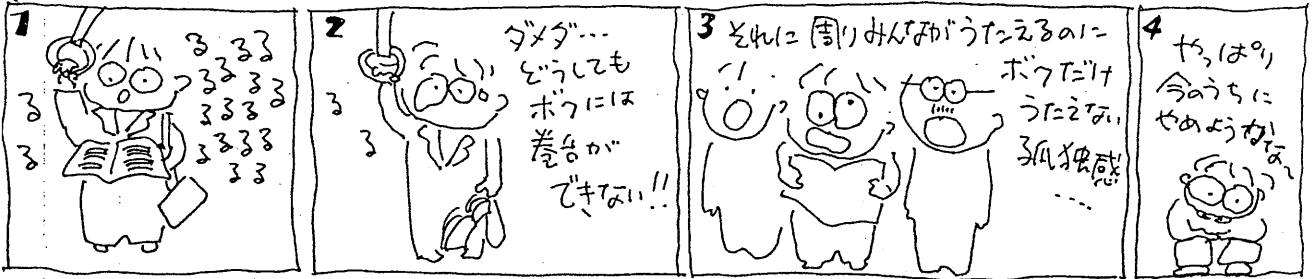 1
る る る
る る る る
る る る る
る る る る
る る
る
る
2
ダメダ…
どうしても
ボクには
巻舌が
できない!!
る
る
3
それに周りみんながうたえるのに
ボクだけ
うたえない
孤独感
....
4
やっぱり
今のうちに
やめようかなぁ〜